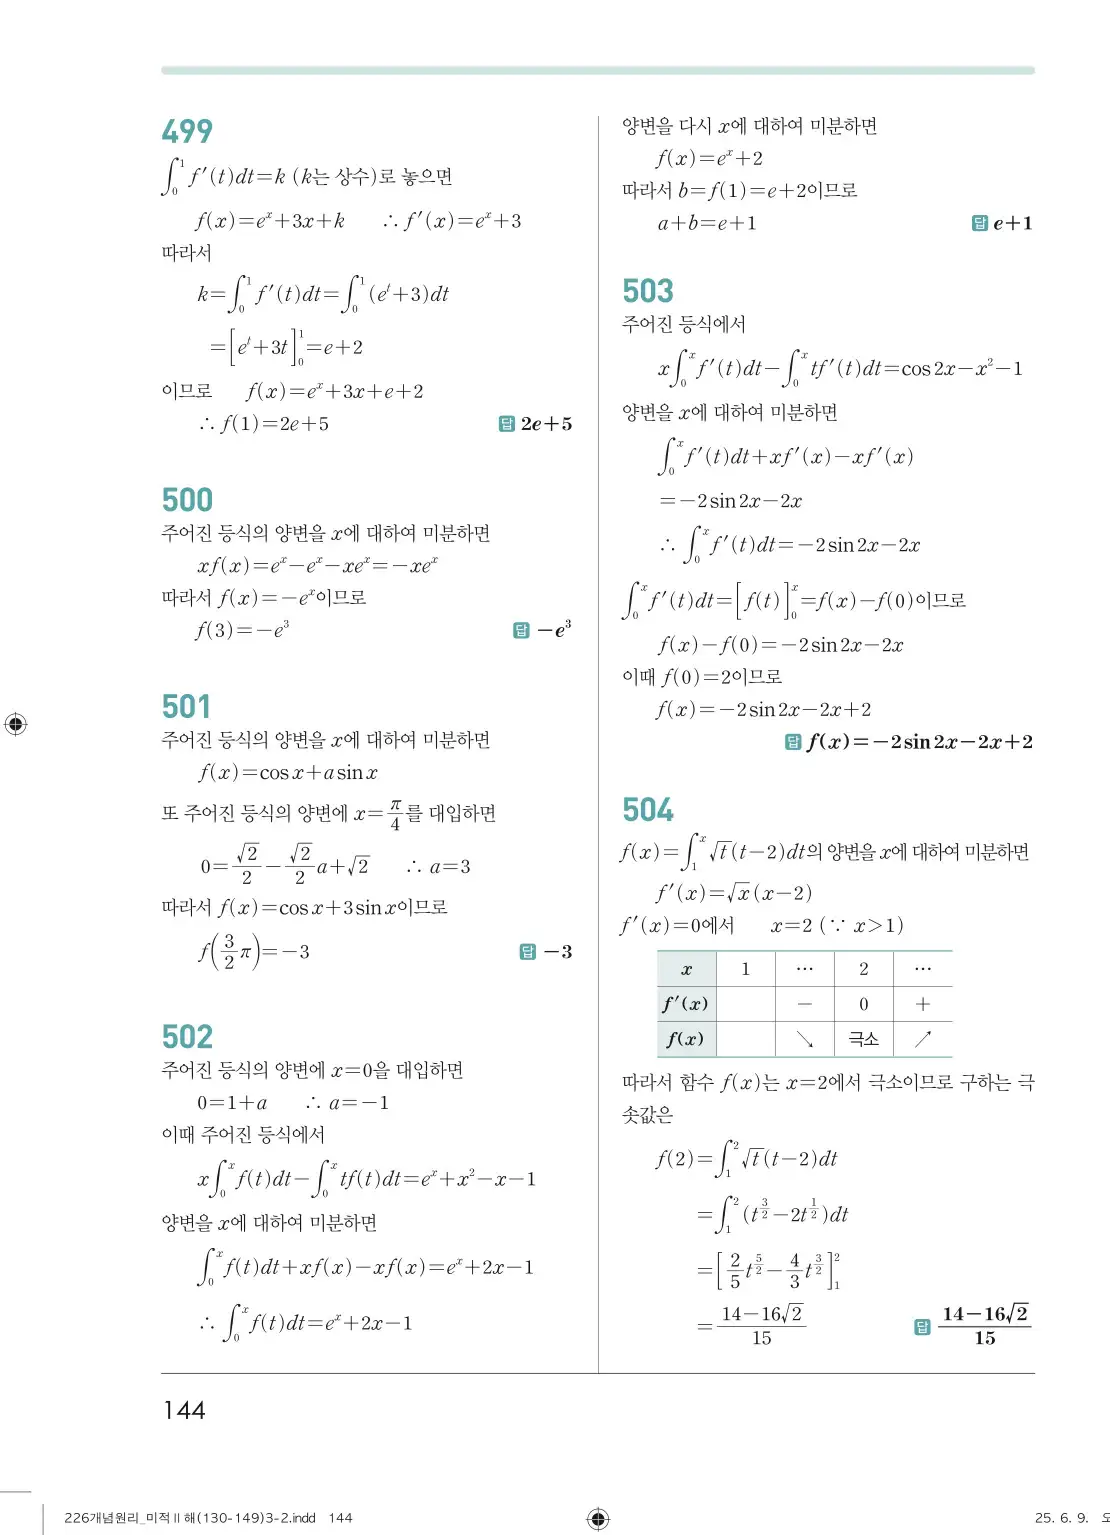 499
∫₀¹ f′(t)dt=k (k는 상수)로 놓으면
f(x)=eˣ+3x+k ∴ f′(x)=eˣ+3
따라서
k=∫₀¹ f′(t)dt=∫₀¹ (eᵗ+3)dt
=[eᵗ+3t]₀¹=e+2
이므로 f(x)=eˣ+3x+e+2
∴ f(1)=2e+5 답 2e+5
500
주어진 등식의 양변을 x에 대하여 미분하면
xf(x)=eˣ-eˣ-xeˣ=-xeˣ
따라서 f(x)=-eˣ이므로
f(3)=-e³ 답 -e³
501
주어진 등식의 양변을 x에 대하여 미분하면
f(x)=cos x+a sin x
또 주어진 등식의 양변에 x=π/4를 대입하면
0=√2/2-√2/2 a+√2 ∴ a=3
따라서 f(x)=cos x+3 sin x이므로
f(3/2 π)=-3 답 -3
502
주어진 등식의 양변에 x=0을 대입하면
0=1+a ∴ a=-1
이때 주어진 등식에서
x∫₀ˣ f(t)dt-∫₀ˣ tf(t)dt=eˣ+x²-x-1
양변을 x에 대하여 미분하면
∫₀ˣ f(t)dt+xf(x)-xf(x)=eˣ+2x-1
∴ ∫₀ˣ f(t)dt=eˣ+2x-1
양변을 다시 x에 대하여 미분하면
f(x)=eˣ+2
따라서 b=f(1)=e+2이므로
a+b=e+1 답 e+1
503
주어진 등식에서
x∫₀ˣ f′(t)dt-∫₀ˣ tf′(t)dt=cos 2x-x²-1
양변을 x에 대하여 미분하면
∫₀ˣ f′(t)dt+xf′(x)-xf′(x)
=-2 sin 2x-2x
∴ ∫₀ˣ f′(t)dt=-2 sin 2x-2x
∫₀ˣ f′(t)dt=[f(t)]₀ˣ=f(x)-f(0)이므로
f(x)-f(0)=-2 sin 2x-2x
이때 f(0)=2이므로
f(x)=-2 sin 2x-2x+2
답 f(x)=-2 sin 2x-2x+2
504
f(x)=∫₁ˣ √t(t-2)dt의 양변을 x에 대하여 미분하면
f′(x)=√x(x-2)
f′(x)=0에서 x=2 (∵ x>1)
x 1 … 2 …
f′(x) - 0 +
f(x) ↘ 극소 ↗
따라서 함수 f(x)는 x=2에서 극소이므로 구하는 극
솟값은
f(2)=∫₁² √t(t-2)dt
=∫₁² (t^(3/2)-2t^(1/2))dt
=[2/5 t^(5/2)-4/3 t^(3/2)]₁²
=(14-16√2)/15 답 (14-16√2)/15
144
226개념원리_미적Ⅱ해(130-149)3-2.indd 144
25. 6. 9.